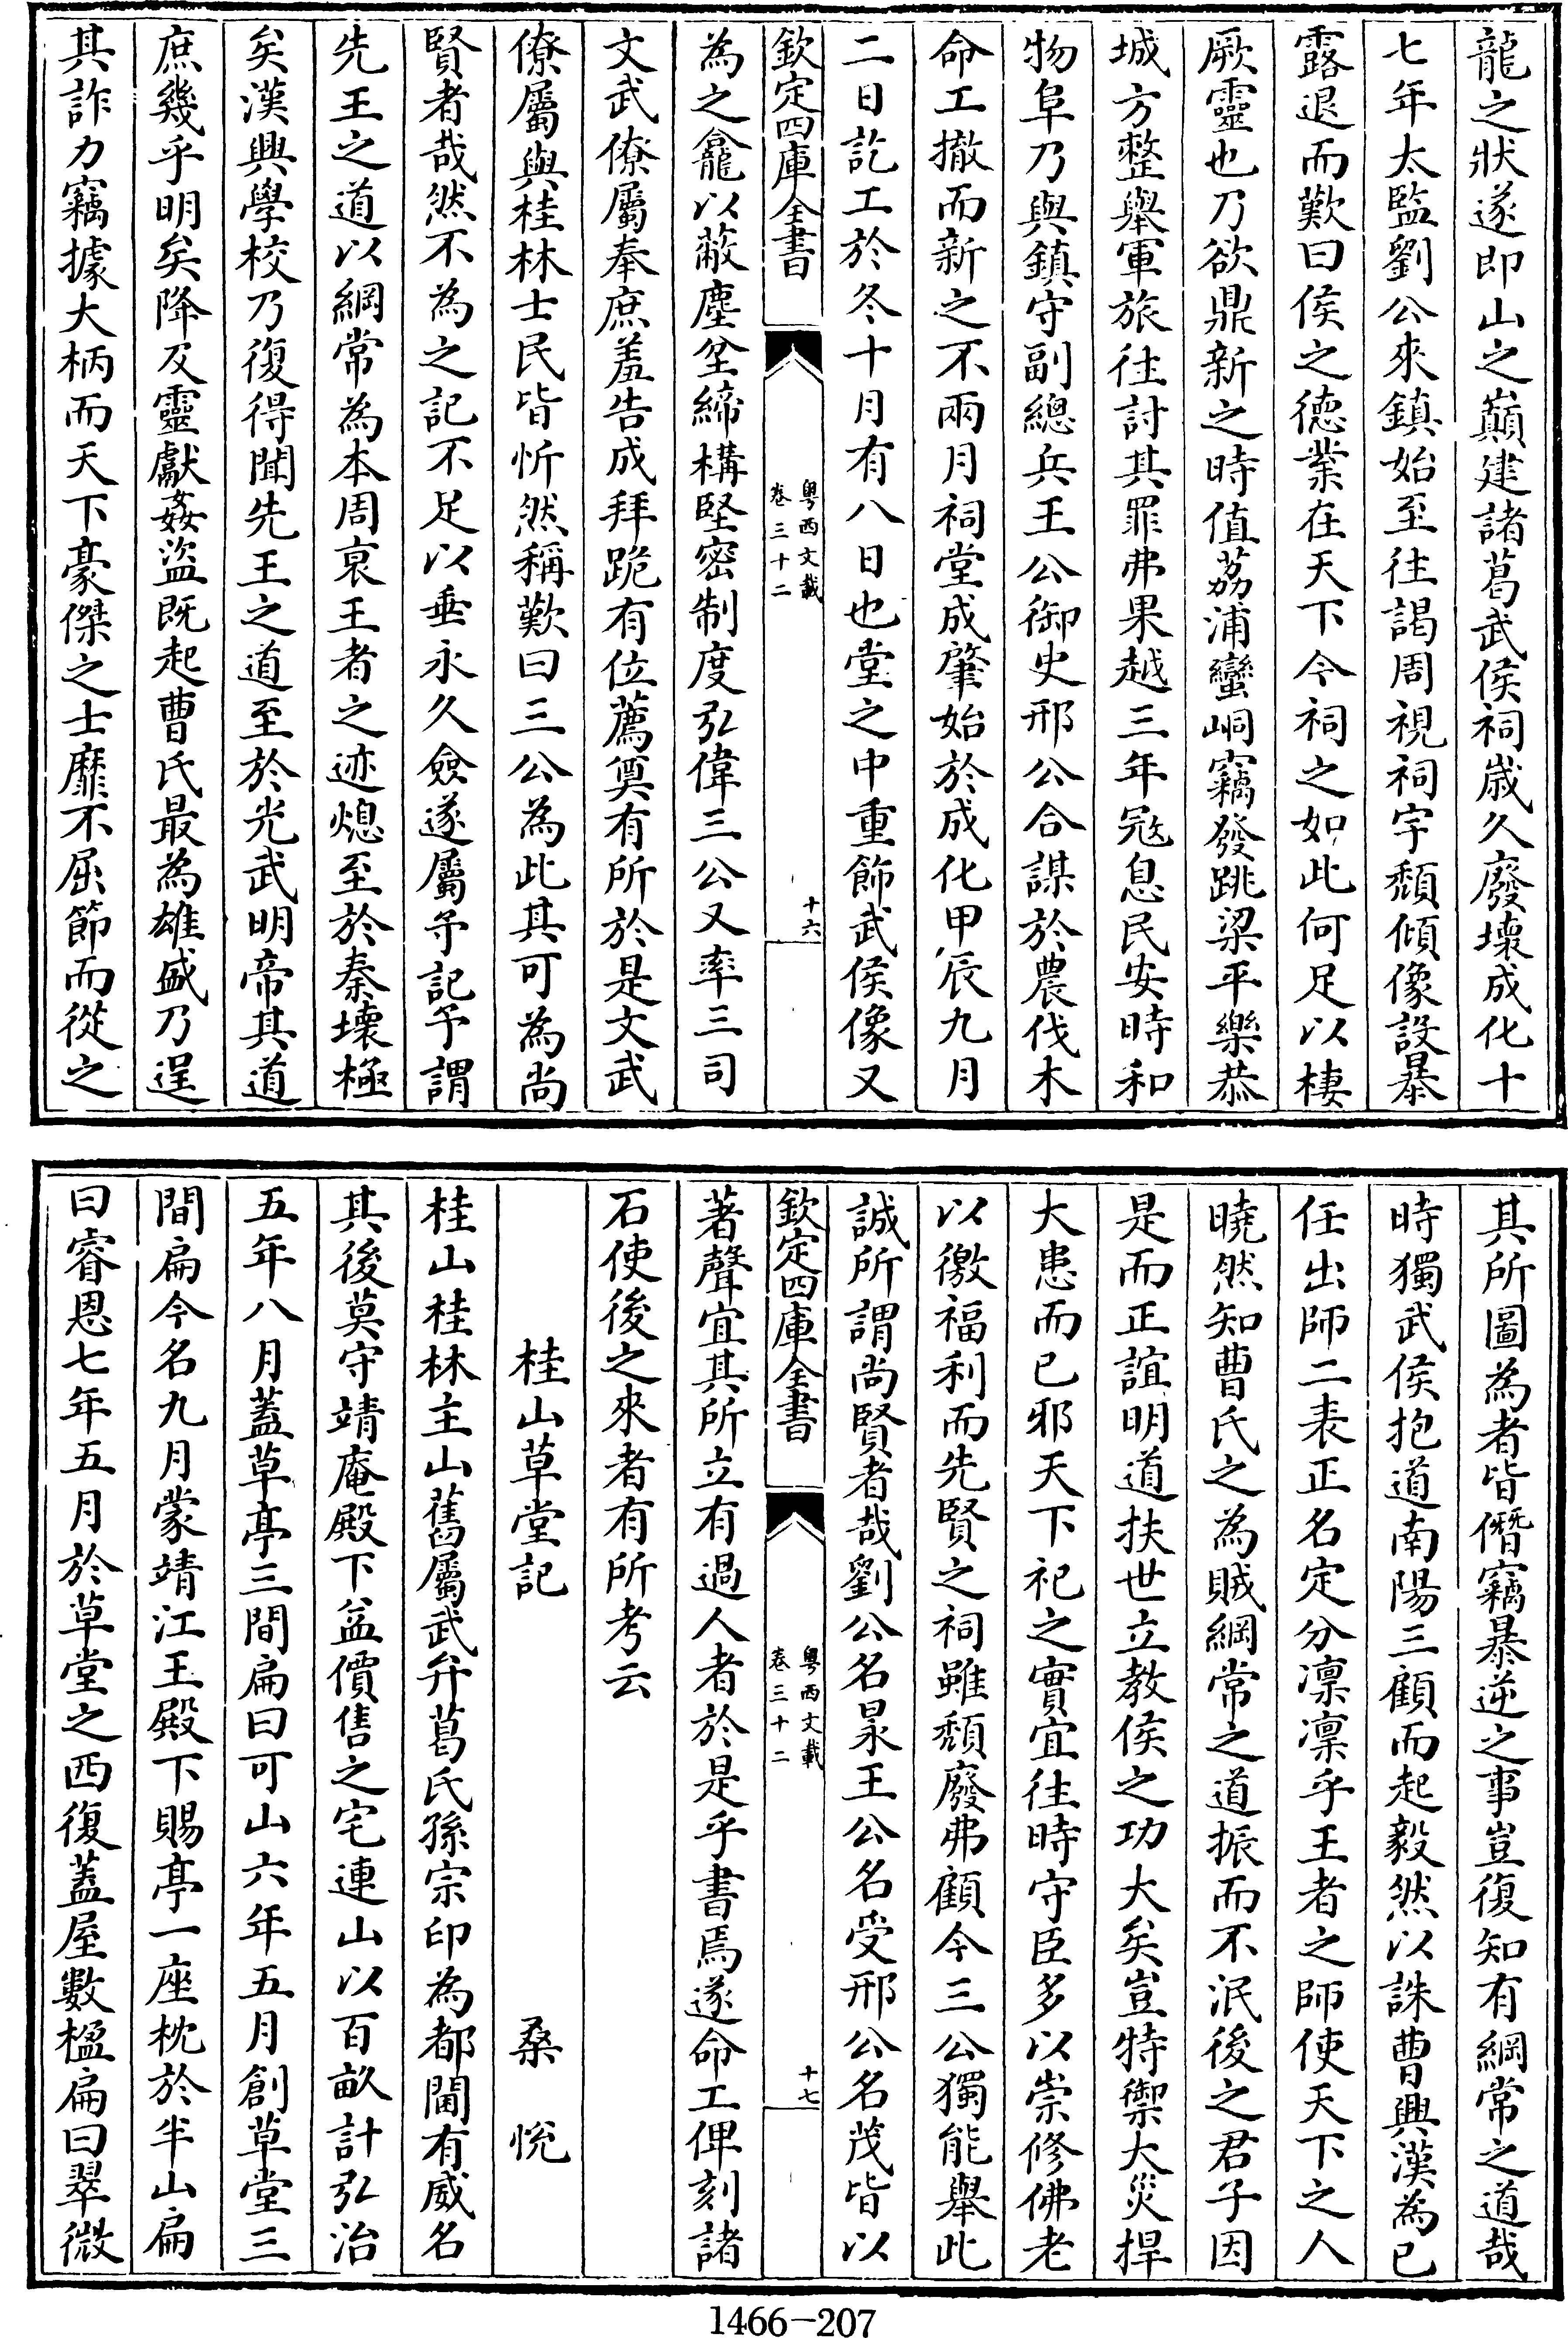 龍之狀遂即山之巔建諸葛武侯祠歲久廢壞成化十
七年太監劉公來鎮始至往謁周視祠宇頽傾像設暴
露退而歎曰侯之德業在天下今祠之如此何足以棲
厥靈也乃欲鼎新之時值荔浦蠻峒竊發跳梁平樂恭
城方整舉軍旅往討其罪弗果越三年冦息民安時和
物阜乃與鎮守副總兵王公御史邢公合謀於農伐木
命工撤而新之不兩月祠堂成肇始於成化甲辰九月
二日訖工於冬十月有八日也堂之中重飾武侯像又
欽定四庫全書
粤西文載
卷三十二
十六
為之龕以蔽塵坌締構堅密制度弘偉三公又率三司
文武僚屬奉庶羞告成拜跪有位薦奠有所於是文武
僚屬與桂林士民皆忻然稱歎曰三公為此其可為尚
賢者哉然不為之記不足以垂永久僉遂屬予記予謂
先王之道以綱常為本周衰王者之迹熄至於秦壞極
矣漢興學校乃復得聞先王之道至於光武明帝其道
庶幾乎明矣降及靈獻姦盗既起曹氏最為雄盛乃逞
其詐力竊據大柄而天下豪傑之士靡不屈節而從之
其所圖為者皆僭竊暴逆之事豈復知有綱常之道哉
時獨武侯抱道南陽三顧而起毅然以誅曹興漢為己
任出師二表正名定分凛凛乎王者之師使天下之人
曉然知曹氏之為賊綱常之道振而不泯後之君子因
是而正誼明道扶世立教侯之功大矣豈特禦大災捍
大患而已邪天下祀之實宜往時守臣多以崇修佛老
以徼福利而先賢之祠雖頽廢弗顧今三公獨能舉此
誠所謂尚賢者哉劉公名杲王公名受邢公名茂皆以
欽定四庫全書
粤西文載
卷三十二
十七
著聲宜其所立有過人者於是乎書焉遂命工俾刻諸
石使後之來者有所考云
桂山草堂記 桑悅
桂山桂林主山舊屬武弁葛氏孫宗印為都閫有威名
其後莫守靖庵殿下益價售之宅連山以百畝計弘治
五年八月蓋草亭三間扁曰可山六年五月創草堂三
間扁今名九月蒙靖江王殿下賜亭一座枕於半山扁
曰睿恩七年五月於草堂之西復蓋屋數楹扁曰翠微
1466-207